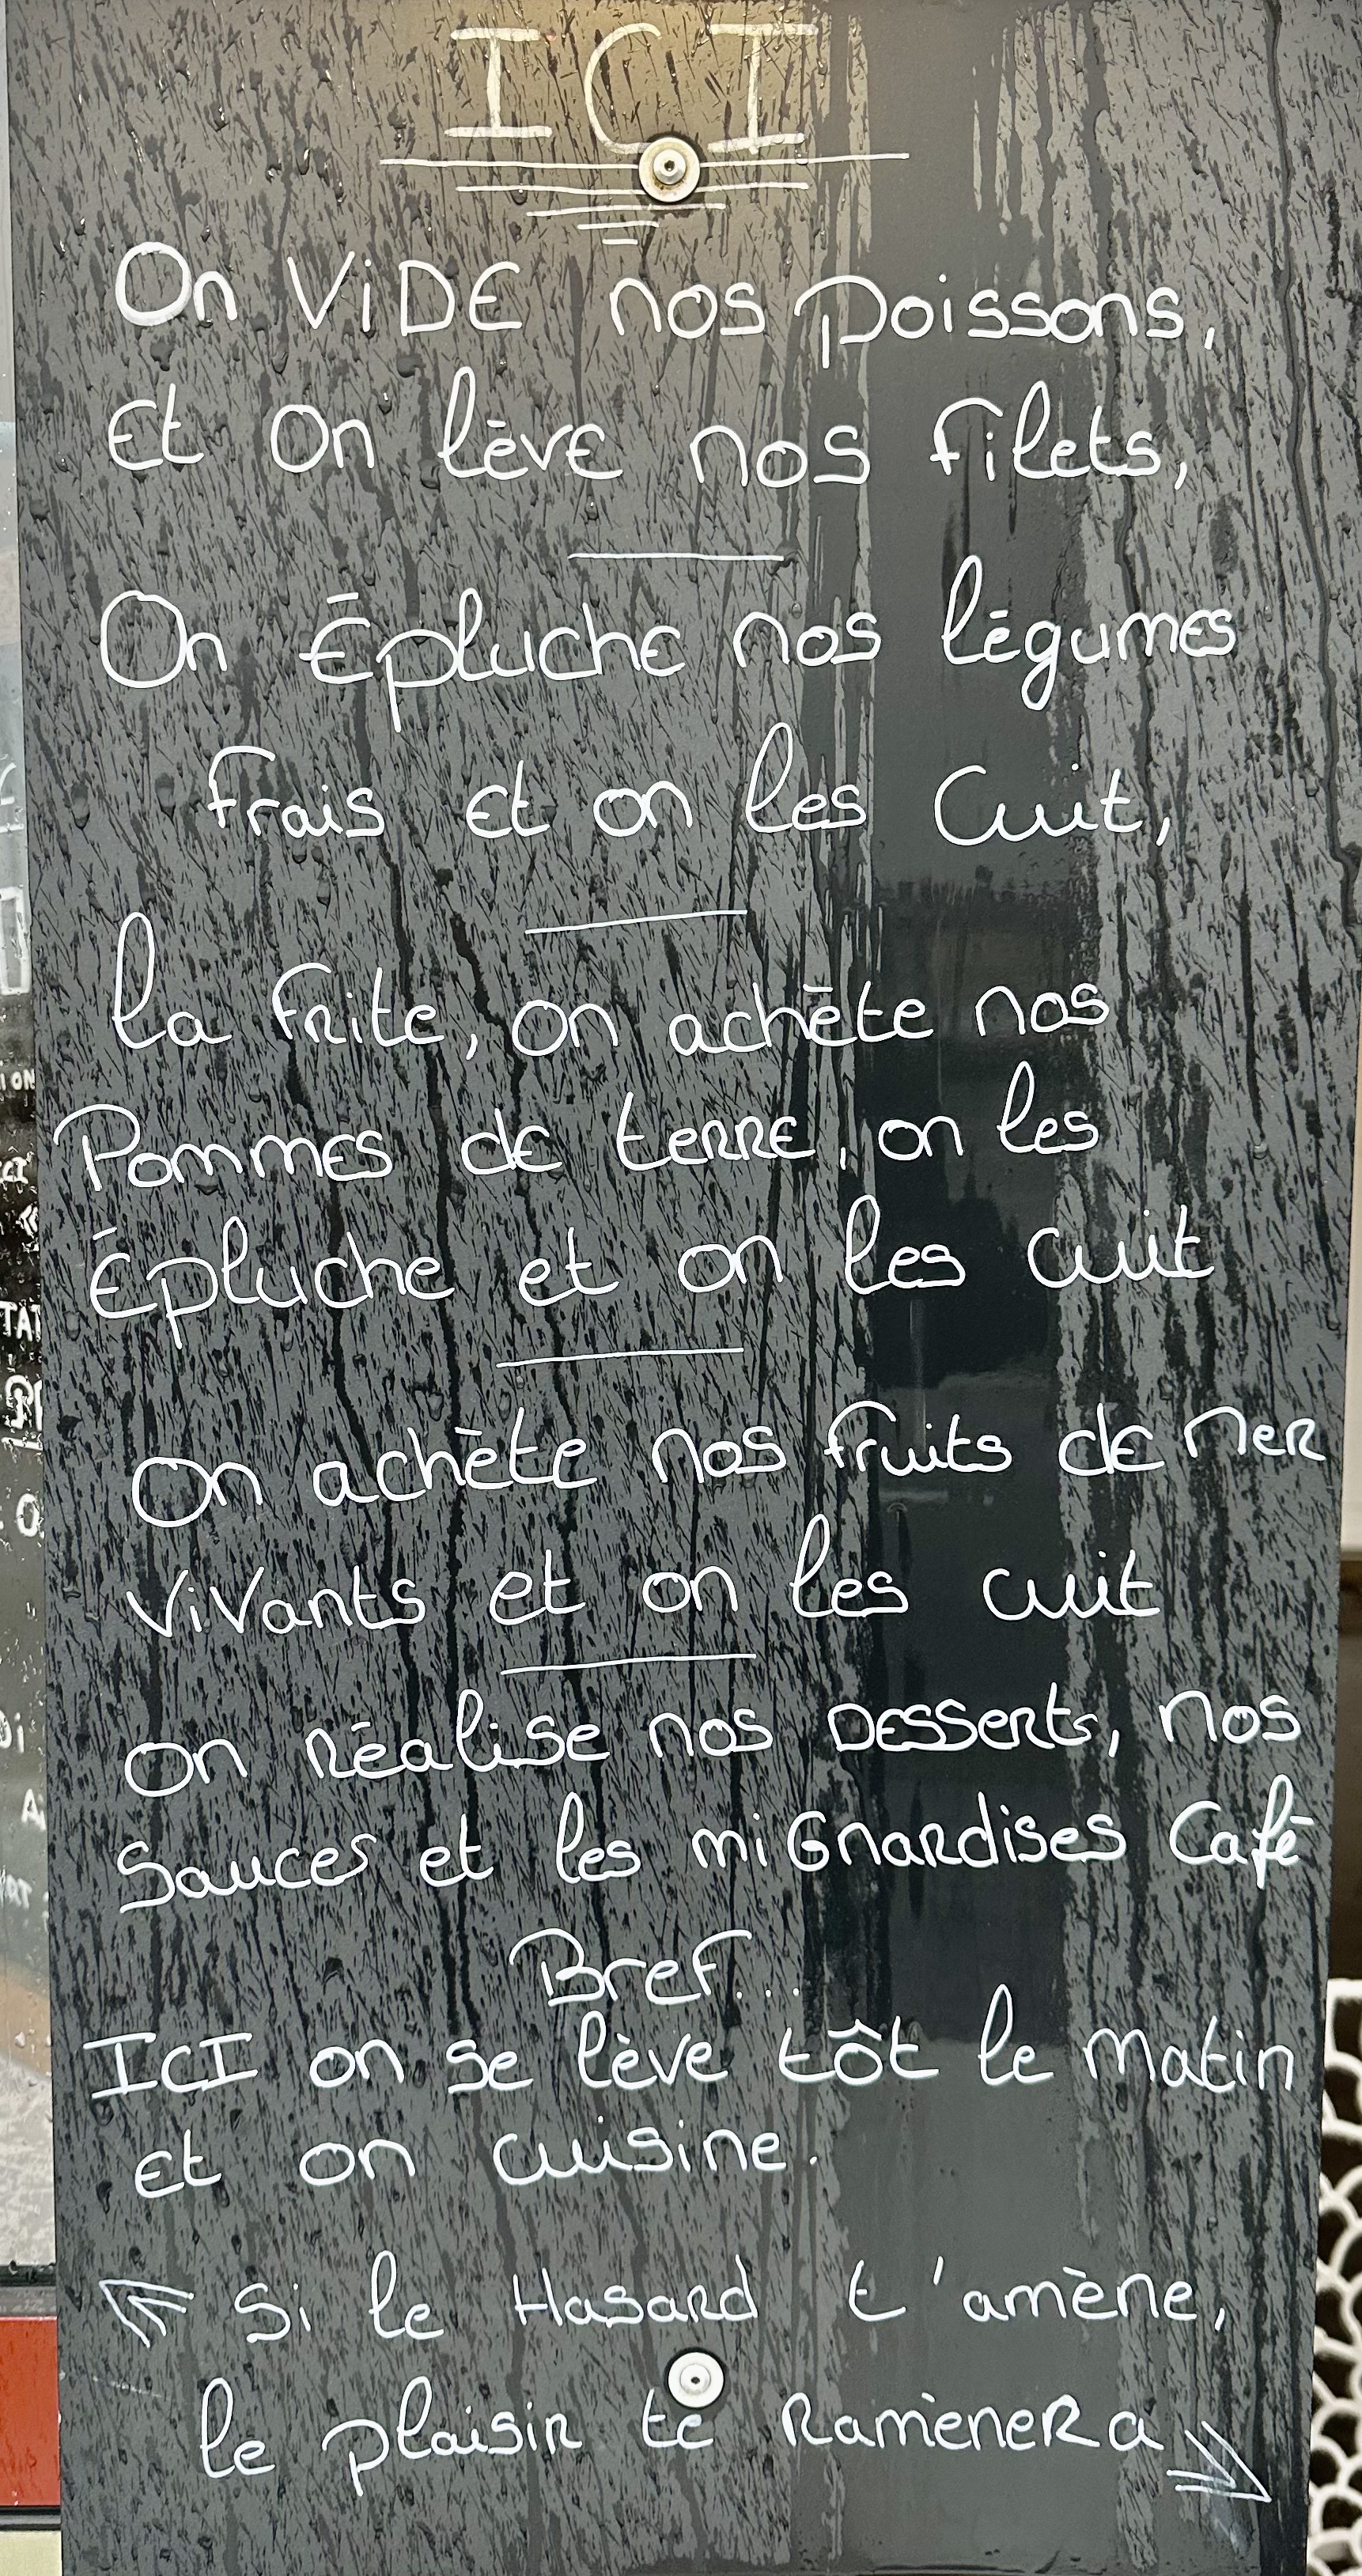 ICI
On ViDE nos poissons,
Et On lève nos filets,
On Épluche nos légumes
frais et on les Cuit,
la frite, on achète nos
Pommes de terre, on les
Épluche et on les cuit
On achète nos fruits de mer
ViVants et on les cuit
on Réalise nos Desserts, nos
Sauces et les miGnardises Café
Bref...
ICI on se lève tôt le matin
et on cuisine.
Si le Hasard t'amène,
le plaisir te Ramènera